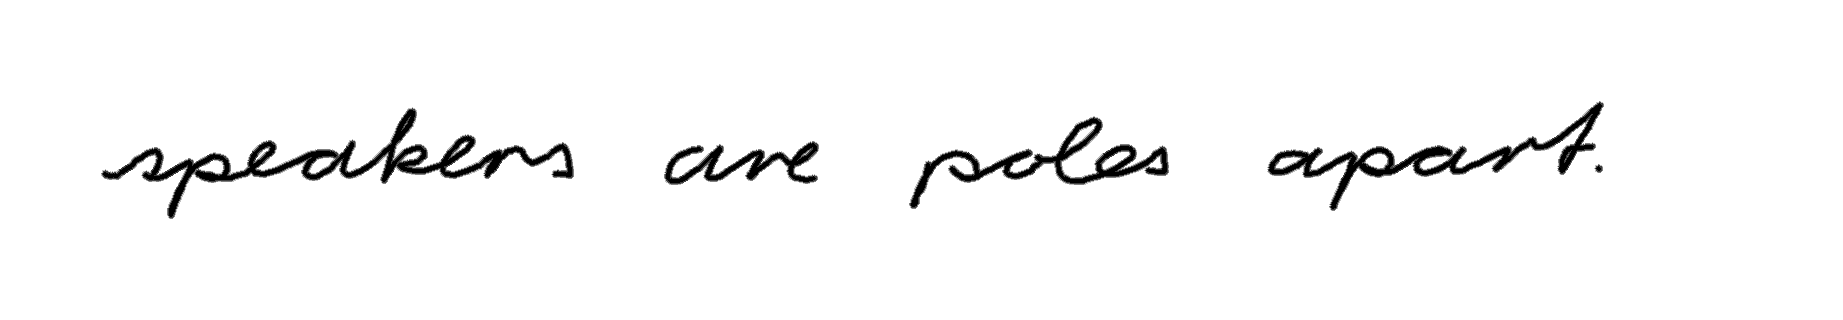 speakers are poles apart.